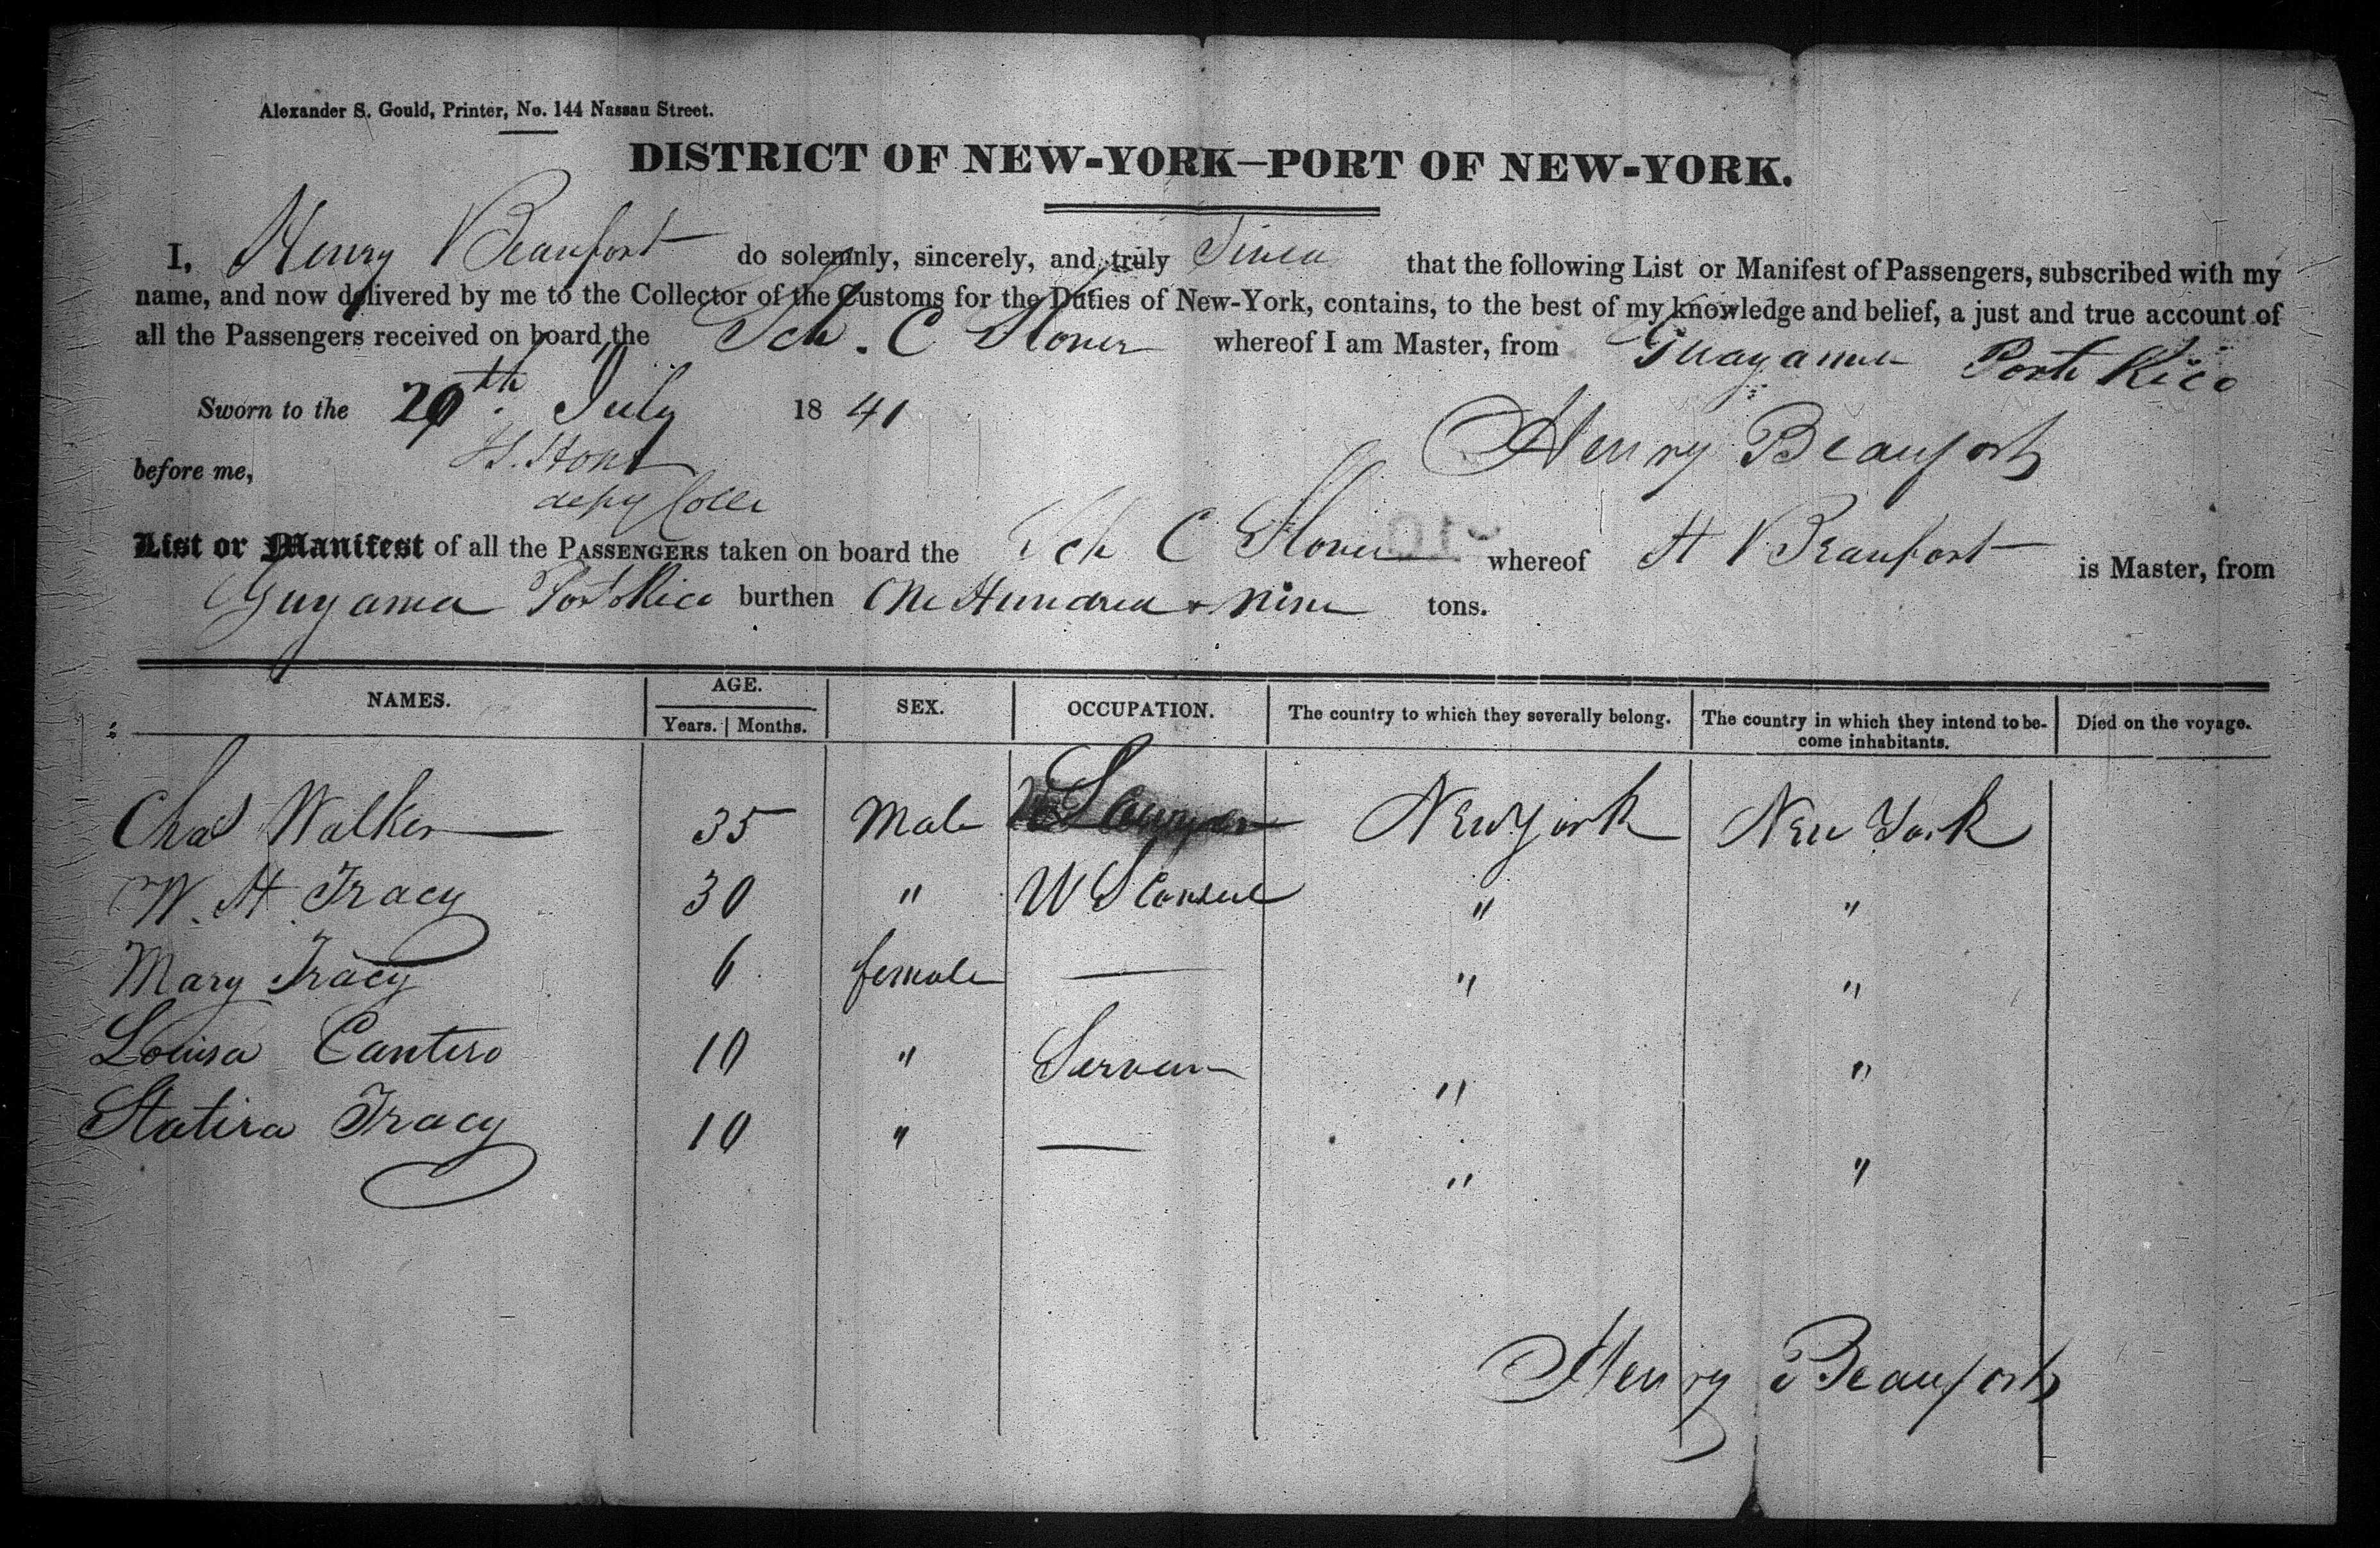 Alexander S. Gould, Printer, No. 144 Nassau Street.
DISTRICT OF NEW-YORK—PORT OF NEW-YORK.
I, Henry Beaufort do solemnly, sincerely, and truly that the following List or Manifest of Passengers, subscribed with my
name, and now delivered by me to the Collector of the Customs for the Duties of New-York, contains, to the best of my knowledge and belief, a just and true account of
all the Passengers received on board the Sch. C Stover whereof I am Master, from Guayama Porto Rico
Sworn to the 29th July 1841 Henry Beaufort
before me,
depy Colle
List or Manifest of all the PASSENGERS taken on board the Sch C Stover whereof H Beaufort is Master, from
Guyama Porto Rico burthen One Hundred & nine tons.
NAMES. AGE. Years. | Months. SEX. OCCUPATION. The country to which they severally belong. The country in which they intend to become inhabitants. Died on the voyage.
Chas Walker 35 Male New York New York
W. H. Tracy 30 " U S Consul " "
Mary Tracy 6 female — " "
Louisa Cantero 10 " Servan " "
Statira Tracy 10 " — " "
Henry Beaufort